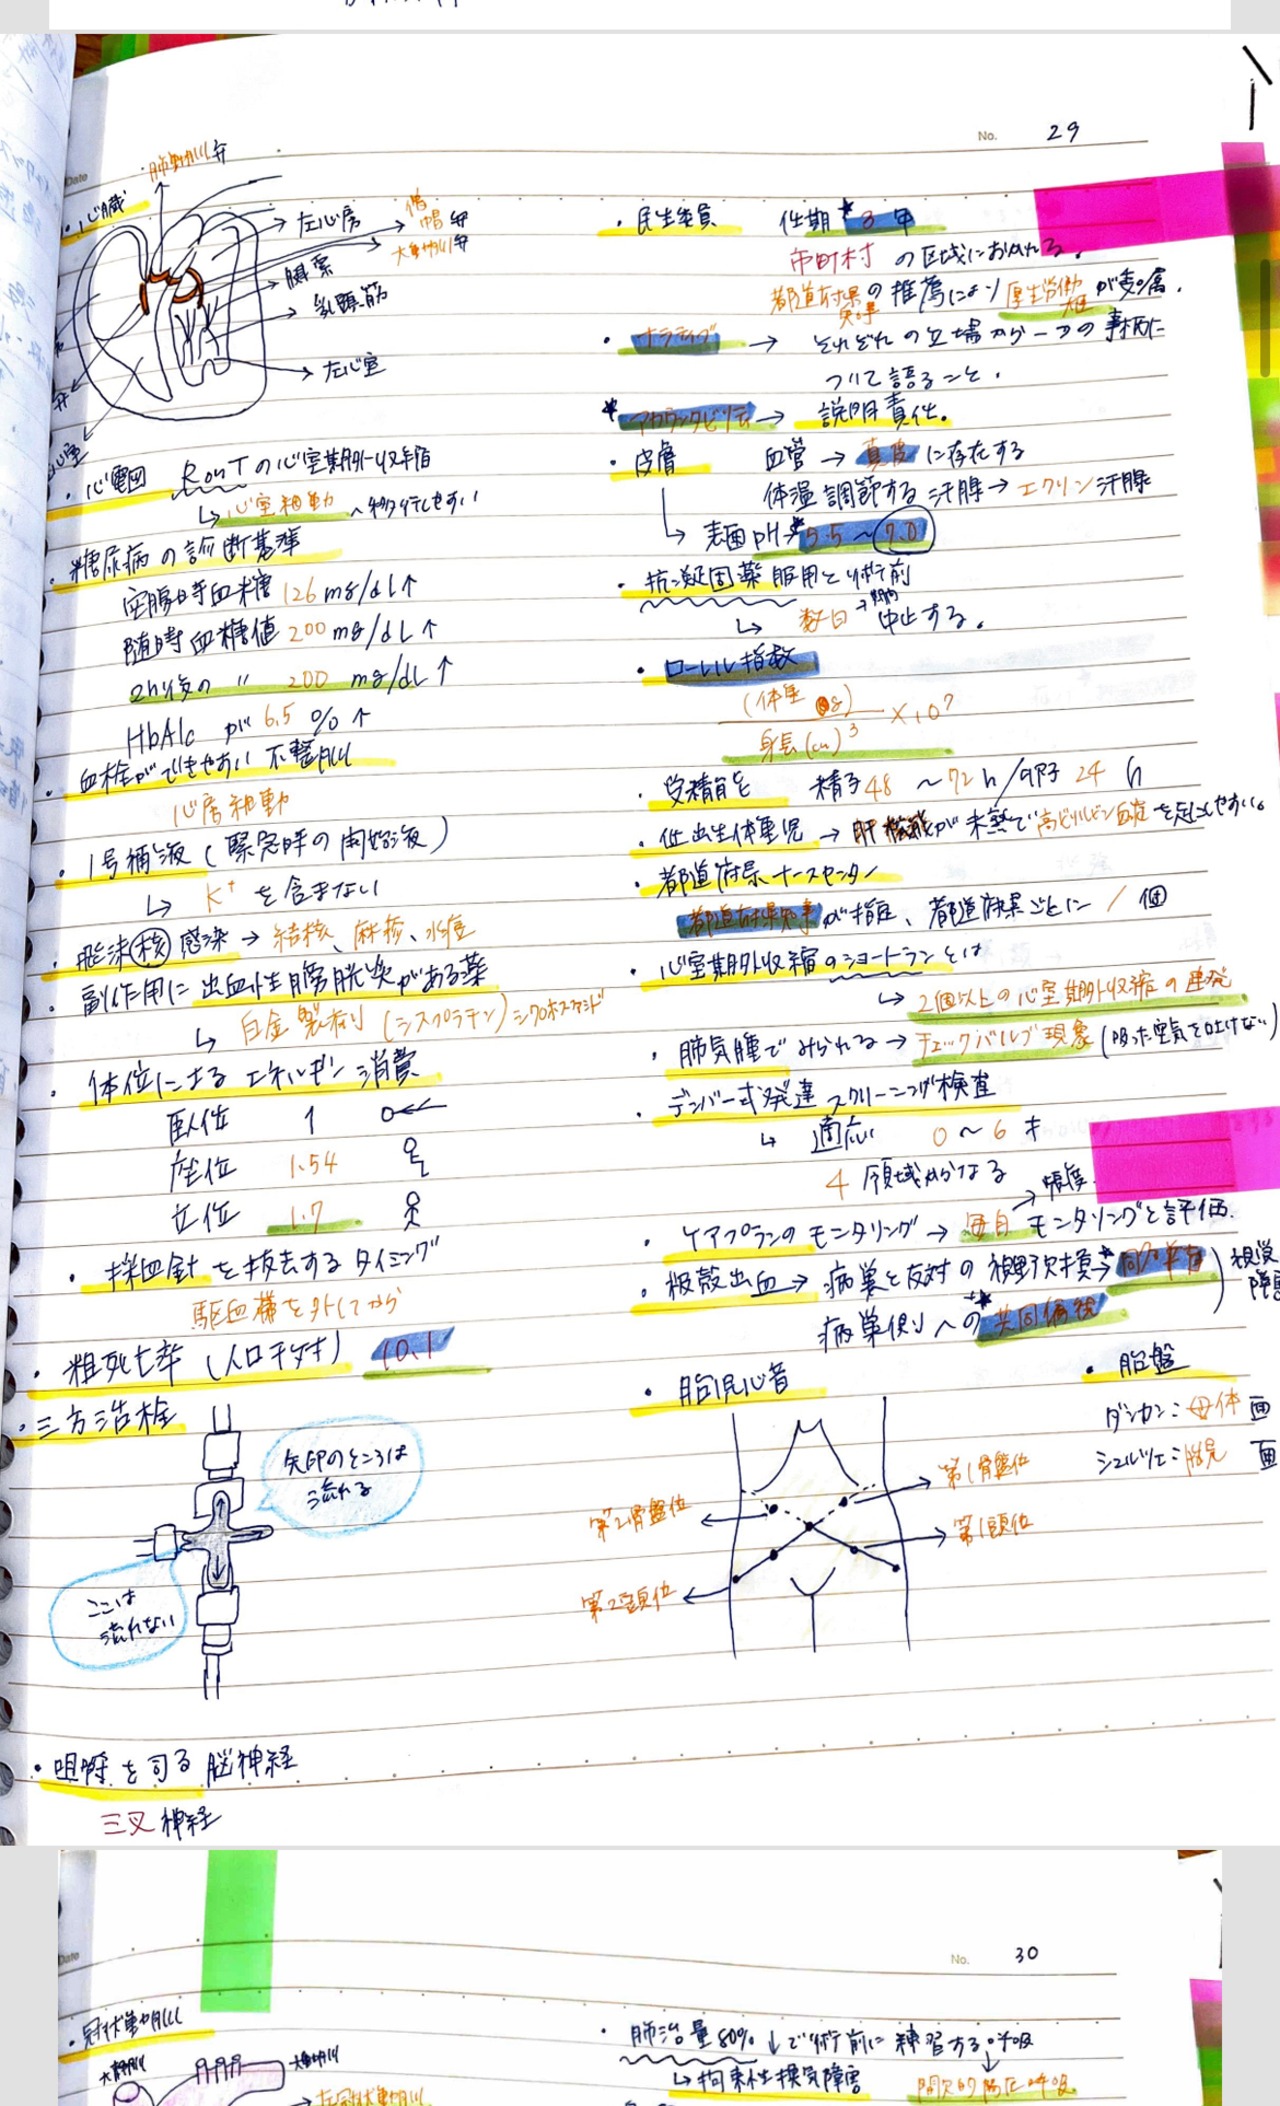 No. 29
Date
・心臓
肺動脈弁
左心房
僧帽弁
大動脈弁
腱索
乳頭筋
左心室
弁
心室
・心電図 RonTの心室期外収縮
↳心室細動へ移行しやすい
・糖尿病の診断基準
空腹時血糖 126 mg/dl↑
随時血糖値 200 mg/dL↑
2h後の 〃 200 mg/dL↑
HbA1c が 6.5 %↑
・血栓ができやすい不整脈
心房細動
・1号補液(緊急時の開始液)
↳ K⁺ を含まない
・飛沫核感染→結核、麻疹、水痘
・副作用に出血性膀胱炎がある薬
↳ 白金製剤(シスプラチン)シクロホスファミド
・体位によるエネルギー消費
臥位 1
座位 1.54
立位 1.7
・採血針を抜去するタイミング
駆血帯を外してから
・粗死亡率(人口千対) 10.1
・三方活栓
矢印のところは
流れる
ここは
流れない
・咀嚼を司る脳神経
三叉神経
・民生委員 任期★3年
市町村の区域におかれる。
都道府県知事の推薦により厚生労働大臣が委嘱。
・ナラティブ → それぞれの立場から一つの事柄に
ついて語ること。
★アカウンタビリティ→ 説明責任。
・皮膚 血管→真皮に存在する
体温調節する汗腺→エクリン汗腺
↳ 表面pH★5.5~7.0
・抗凝固薬服用とオペ前
↳ 数日→期間中止する。
・ローレル指数
(体重 g)
身長(cm)³
×10⁷
・受精能 精子48~72h/卵子24h
・低出生体重児→肝機能が未熟で高ビリルビン血症を起こしやすい。
・都道府県ナースセンター
都道府県知事が指定、都道府県ごとに1個
・心室期外収縮のショートランとは
↳ 2個以上の心室期外収縮の連発
・肺気腫でみられる→チェックバルブ現象(吸った空気を吐けない)
・デンバー式発達スクリーニング検査
↳ 適応 0~6才
4領域からなる
・ケアプランのモニタリング→毎月モニタリングと評価。
頻度。
・被殻出血→病巣と反対の視野欠損→★同名半盲
病巣側への★共同偏視
視覚障害
・胎児心音
第2骨盤位
第1骨盤位
第1頭位
第2頭位
・胎盤
ダンカン:母体面
シュルツェ:胎児面
No. 30
Date
・冠状動脈
大静脈
大動脈
左回状動脈
・肺活量80%↓でオペ前に練習する呼吸
↳拘束性換気障害
間欠的陽圧呼吸